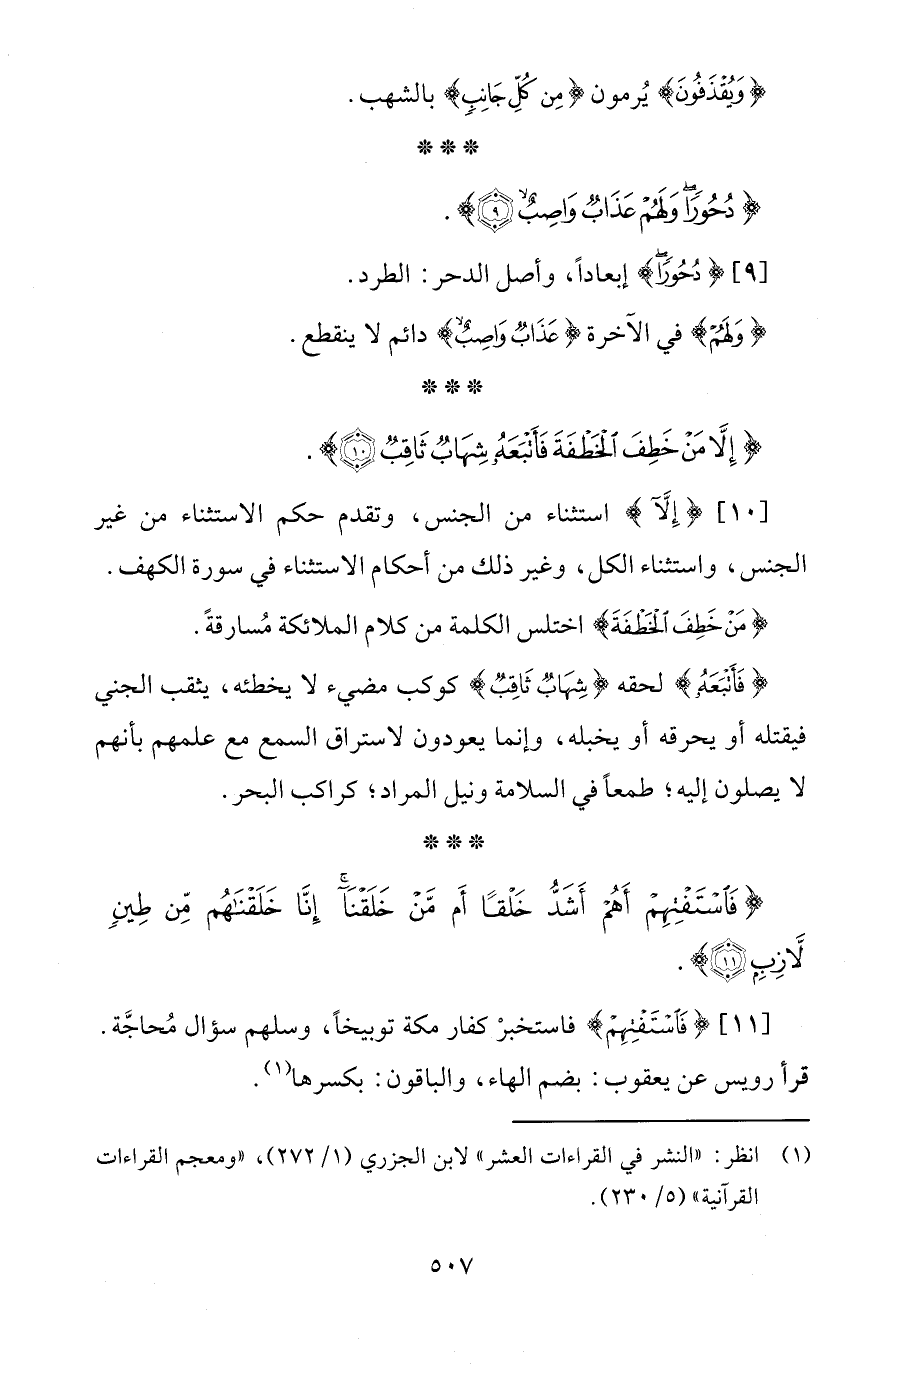 ﴿وَيُقْذَفُونَ﴾ يُرمون ﴿مِن كُلِّ جَانِبٍ﴾ بالشهب.
* * *
﴿دُحُورًاۖ وَلَهُمْ عَذَابٌ وَاصِبٌ ۙ ٩﴾.
[٩] ﴿دُحُورًاۖ﴾ إبعاداً، وأصل الدحر: الطرد.
﴿وَلَهُمْ﴾ في الآخرة ﴿عَذَابٌ وَاصِبٌ ۙ﴾ دائم لا ينقطع.
* * *
﴿إِلَّا مَنْ خَطِفَ ٱلْخَطْفَةَ فَأَتْبَعَهُۥ شِهَابٌ ثَاقِبٌ ١٠﴾.
[١٠] ﴿إِلَّا﴾ استثناء من الجنس، وتقدم حكم الاستثناء من غير
الجنس، واستثناء الكل، وغير ذلك من أحكام الاستثناء في سورة الكهف.
﴿مَنْ خَطِفَ ٱلْخَطْفَةَ﴾ اختلس الكلمة من كلام الملائكة مُسارقةً.
﴿فَأَتْبَعَهُۥ﴾ لحقه ﴿شِهَابٌ ثَاقِبٌ﴾ كوكب مضيء لا يخطئه، يثقب الجني
فيقتله أو يحرقه أو يخبله، وإنما يعودون لاستراق السمع مع علمهم بأنهم
لا يصلون إليه؛ طمعاً في السلامة ونيل المراد؛ كراكب البحر.
* * *
﴿فَٱسْتَفْتِهِمْ أَهُمْ أَشَدُّ خَلْقًا أَم مَّنْ خَلَقْنَآۚ إِنَّا خَلَقْنَٰهُم مِّن طِينٍ
لَّازِبٍ ١١﴾.
[١١] ﴿فَٱسْتَفْتِهِمْ﴾ فاستخبرْ كفار مكة توبيخاً، وسلهم سؤال مُحاجَّة.
قرأ رويس عن يعقوب: بضم الهاء، والباقون: بكسرها(١).
(١) انظر: «النشر في القراءات العشر» لابن الجزري (١/ ٢٧٢)، «ومعجم القراءات
القرآنية» (٥/ ٢٣٠).
٥٠٧